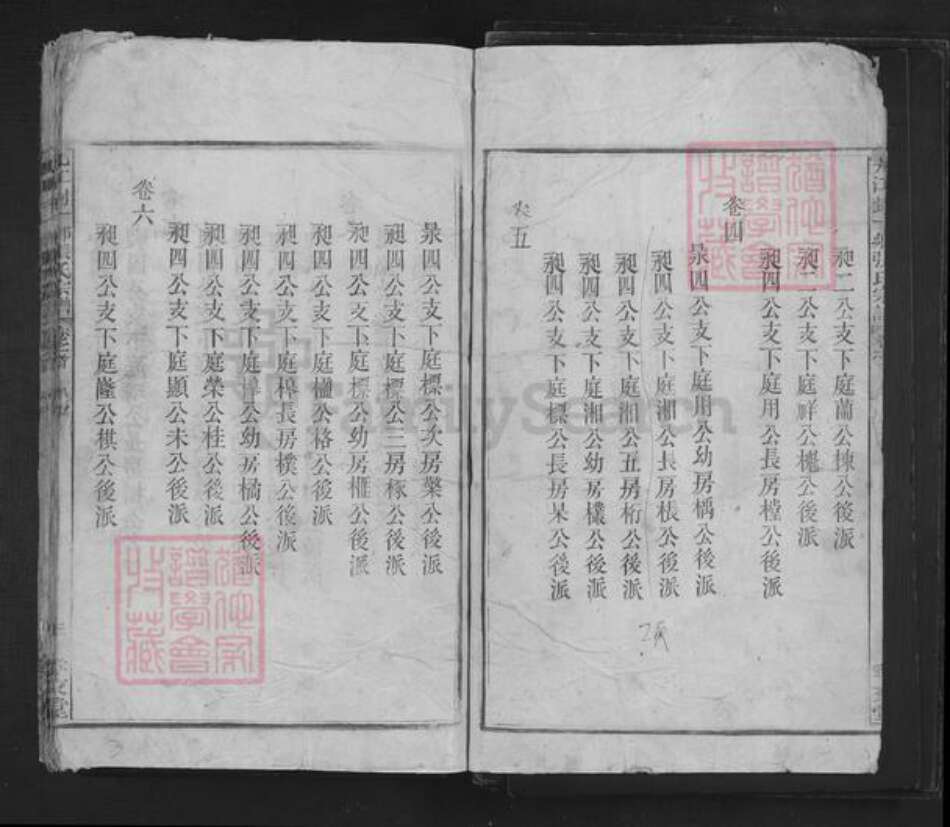 昶二公支下庭蘭公棟公後派
昶二公支下庭祥公槐公後派
昶四公支下庭用公長房樘公後派
卷四
昶四公支下庭用公幼房橋公後派
昶四公支下庭湘公長房棖公後派
昶四公支下庭湘公五房桁公後派
昶四公支下庭湘公幼房欉公後派
昶四公支下庭標公長房杲公後派
卷五
昶四公支下庭標公次房櫱公後派
昶四公支下庭標公三房椓公後派
昶四公支下庭標公幼房榧公後派
昶四公支下庭楹公格公後派
昶四公支下庭樟長房樸公後派
昶四公支下庭樟公幼房橘公後派
昶四公支下庭榮公桂公後派
昶四公支下庭顯公未公後派
卷六
昶四公支下庭隆公棋公後派
猶他家譜學會收藏
猶他家譜學會收藏
FamilySearch